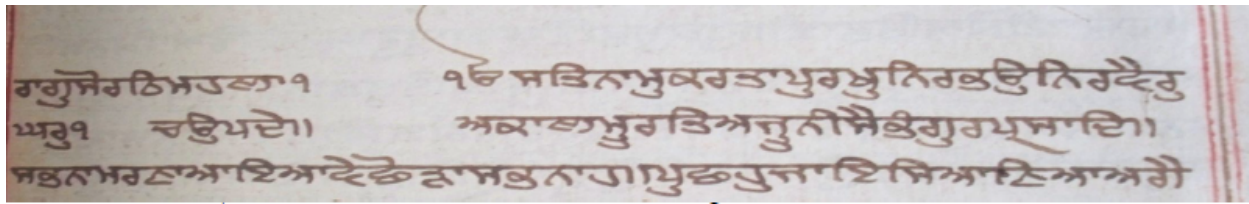 ਰਾਗੁਸੋਰਠਿਮਹਲਾ੧ ੴ ਸਤਿਨਾਮੁਕਰਤਾਪੁਰਖੁਨਿਰਭਉਨਿਰਵੈਰੁ
ਘਰੁ੧ ਚਉਪਦੇ॥ ਅਕਾਲਮੂਰਤਿਅਜੂਨੀਸੈਭੰਗੁਰਪ੍ਰਸਾਦਿ॥
ਸਭਨਾਮਰਣਾਆਇਆਵੇਛੋੜਾਸਭਨਾਹ॥ਪੁਛਹੁਜਾਇਸਿਆਣਿਆਆਗੈ